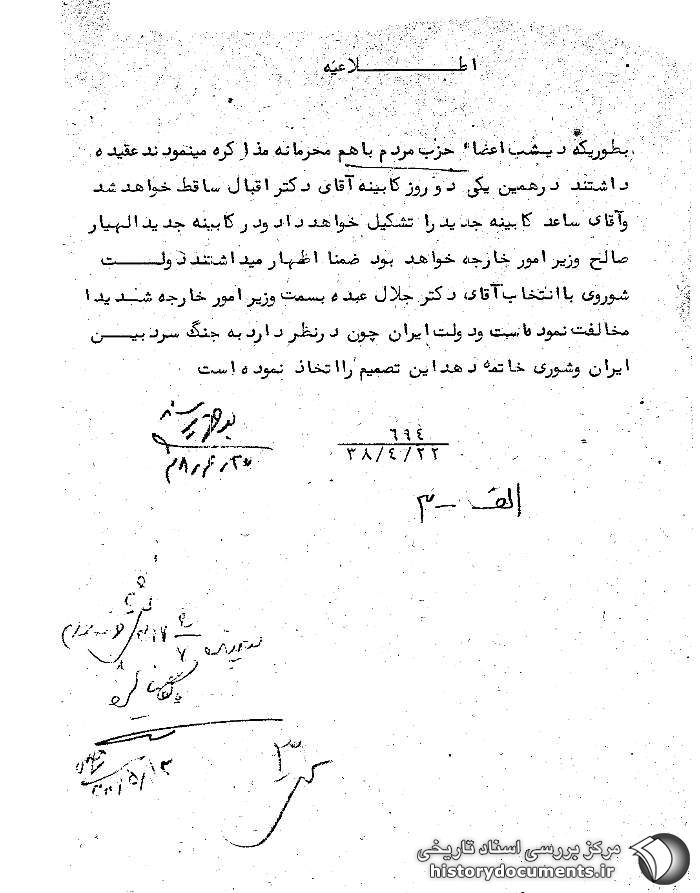 اطلاعیه
بطوریکه دیشب اعضاء حزب مردم باهم محرمانه مذاکره مینمودند عقیده
داشتند درهمین یکی دو روز کابینه آقای دکتر اقبال ساقط خواهد شد
وآقای ساعد کابینه جدید را تشکیل خواهد داد ودر کابینه جدید الهیار
صالح وزیر امور خارجه خواهد بود ضمنا اظهار میداشتند دولت
شوروی باانتخاب آقای دکتر جلال عبده بسمت وزیر امور خارجه شدیدا
مخالفت نموده است ودولت ایران چون درنظر دارد به جنگ سرد بین
ایران وشوری خاتمه دهد این تصمیم رااتخاذ نموده است
٦٩٤
٣٨/٤/٢٢
الف - ٣
٣
مرکز بررسی اسناد تاریخی
historydocuments.ir